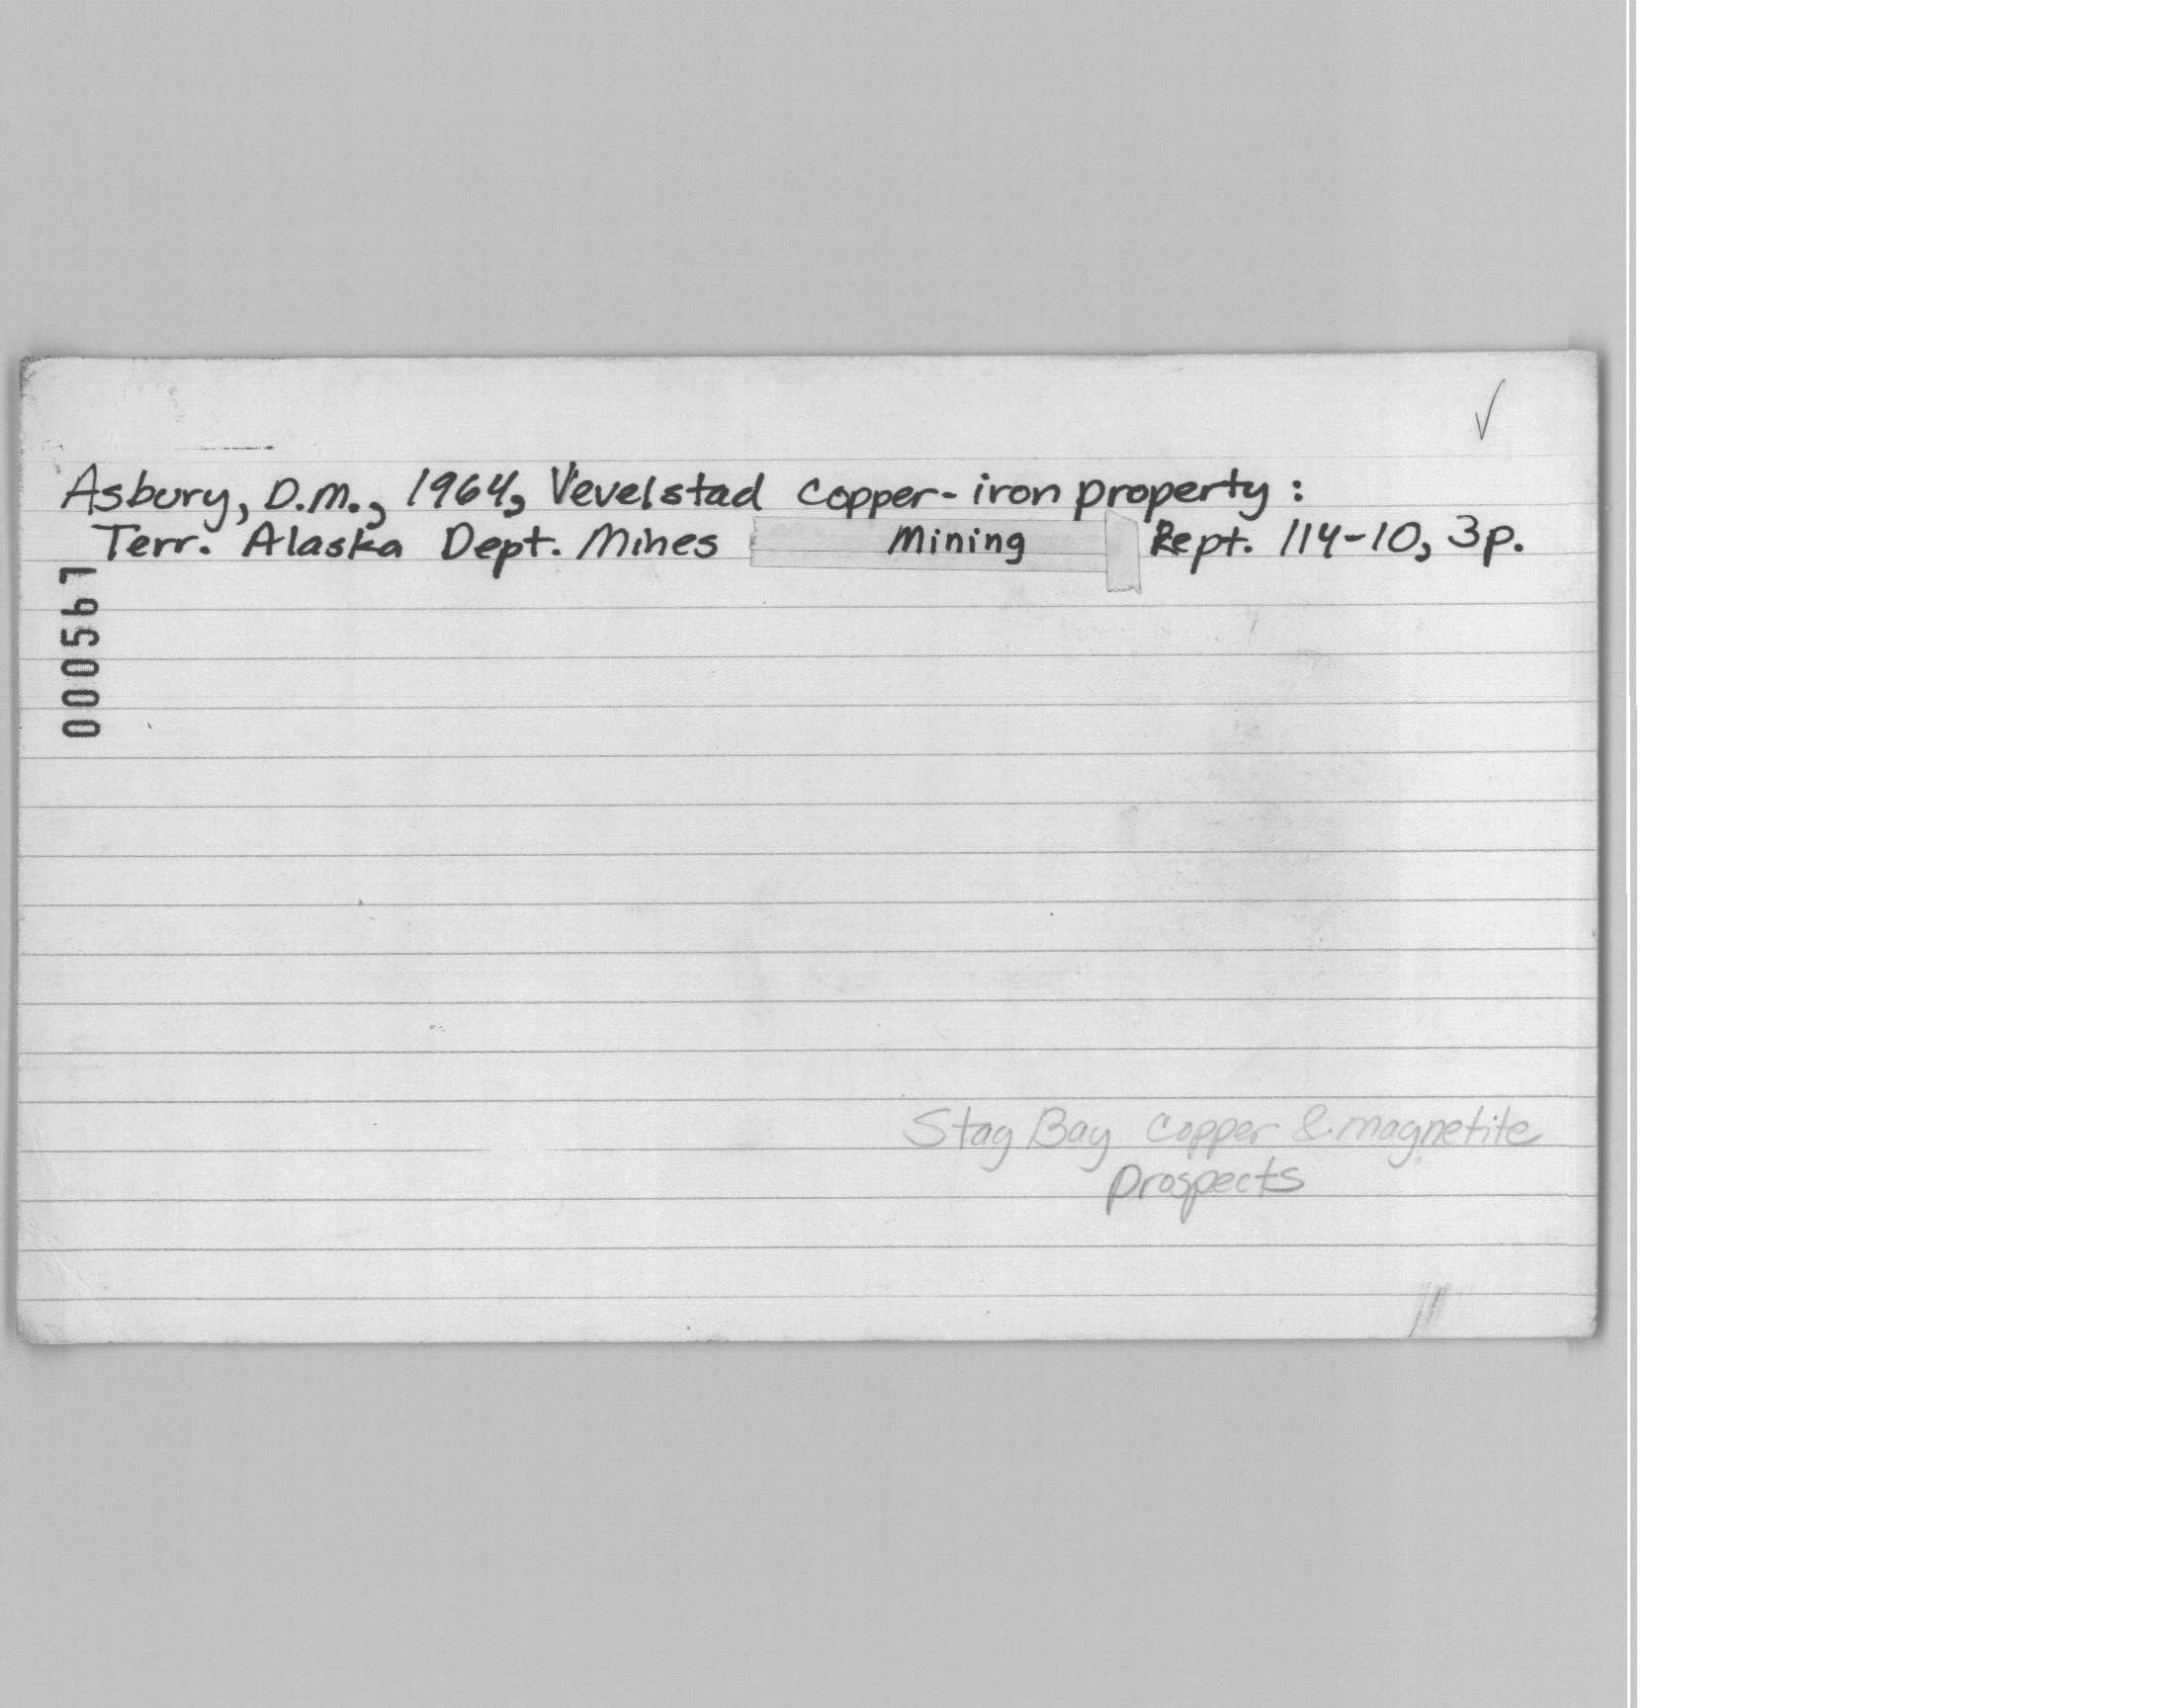 Asbury, D.M., 1964, Vevelstad copper-iron property:
Terr. Alaska Dept. Mines Mining Rept. 114-10, 3p.
000567
Stag Bay copper & magnetite
prospects